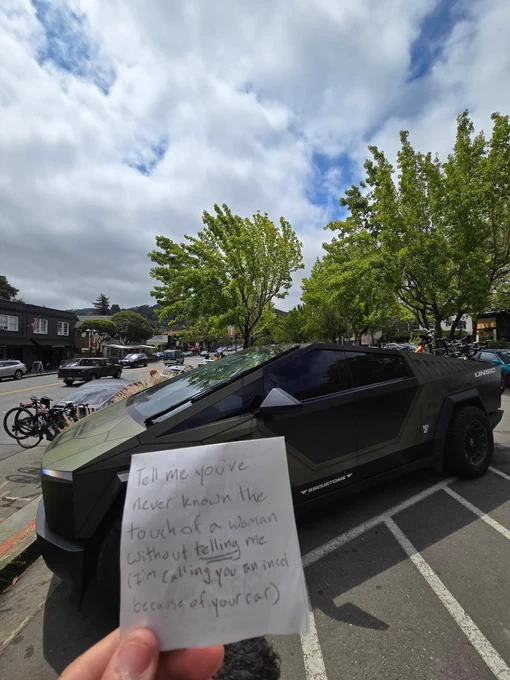 UNSC
SSCUSTOMS
Tell me you've
never known the
touch of a woman
without telling me
(I'm calling you an incel
because of your car)